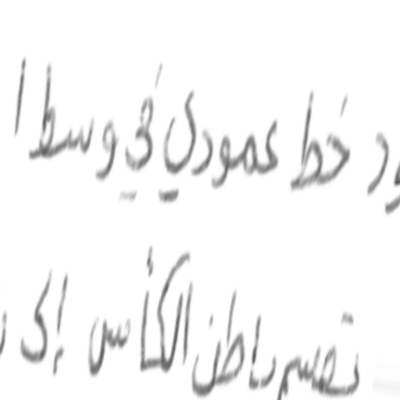 خط عمودي في وسط ا
تقسم باطن الكأس إلى